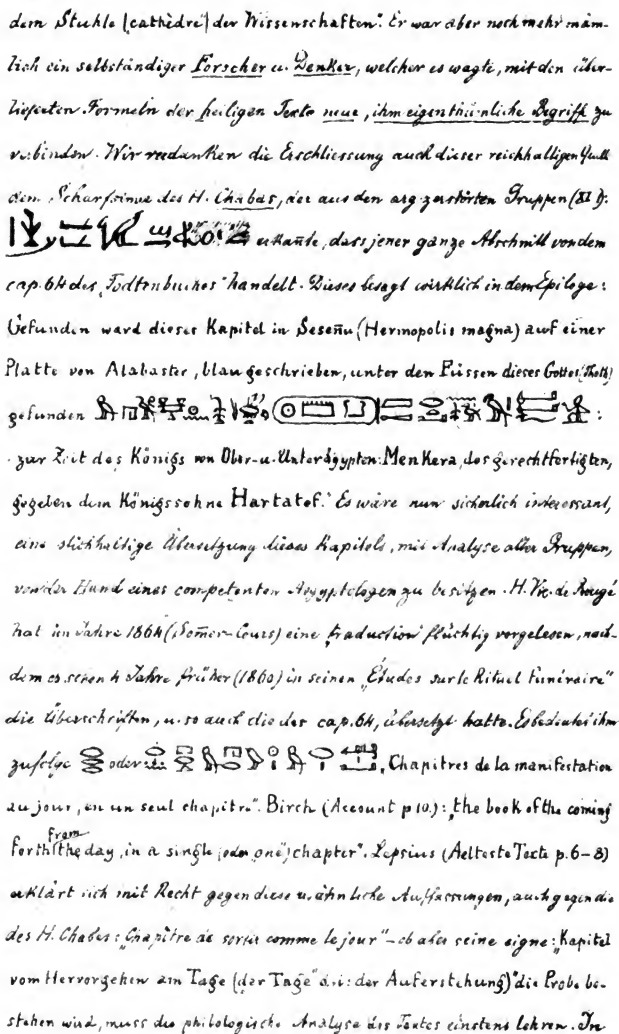 dem Stuhle (cathèdre) der Wissenschaften". Er war aber noch mehr näm-
lich ein selbständiger Forscher u. Denker, welcher es wagte, mit den über-
lieferten Formeln der heiligen Texte neue, ihm eigenthümliche Begriffe zu
verbinden. Wir verdanken die Erschliessung auch dieser reichhaltigen Quelle
dem Scharfsinne des H. Chabas, der aus den arg zerstörten Gruppen (XI 1):
erkannte, dass jener ganze Abschnitt von dem
cap. 64 des „Todtenbuches" handelt. Dieses besagt wirklich in dem Epiloge:
Gefunden ward dieses Kapitel in Sesennu (Hermopolis magna) auf einer
Platte von Alabaster, blau geschrieben, unter den Füssen dieses Gottes (Thoth)
gefunden :
zur Zeit des Königs von Ober- u. Unterägypten: Menkera, des gerechtfertigten,
gegeben dem Königssohne Hartatef." Es wäre nun sicherlich interessant,
eine stichhaltige Übersetzung dieses Kapitels, mit Analyse aller Gruppen,
von der Hand eines competenten Aegyptologen zu besitzen. H. Vic. de Rougé
hat im Jahre 1864 (Somer-Cours) eine traduction flüchtig vorgelesen, nach-
dem er schon 4 Jahre früher (1860) in seinen „Études sur le Rituel funéraire"
die Überschriften, u. so auch die des cap. 64, übersetzt hatte. Es bedeutet ihm
zufolge oder „Chapitres de la manifestation
au jour, en un seul chapitre". Birch (Account p 10.): „the book of the coming
forth from the day, in a single (oder „one") chapter". Lepsius (Aelteste Texte p. 6–8)
erklärt sich mit Recht gegen diese u. ähnliche Auffassungen, auch gegen die
des H. Chabas: „Chapitre de sortir comme le jour" – ob aber seine eigne: „Kapitel
vom Hervorgehen am Tage (der Tage" d. i: der Auferstehung)" die Probe be-
stehen wird, muss die philologische Analyse des Textes einstens lehren. In